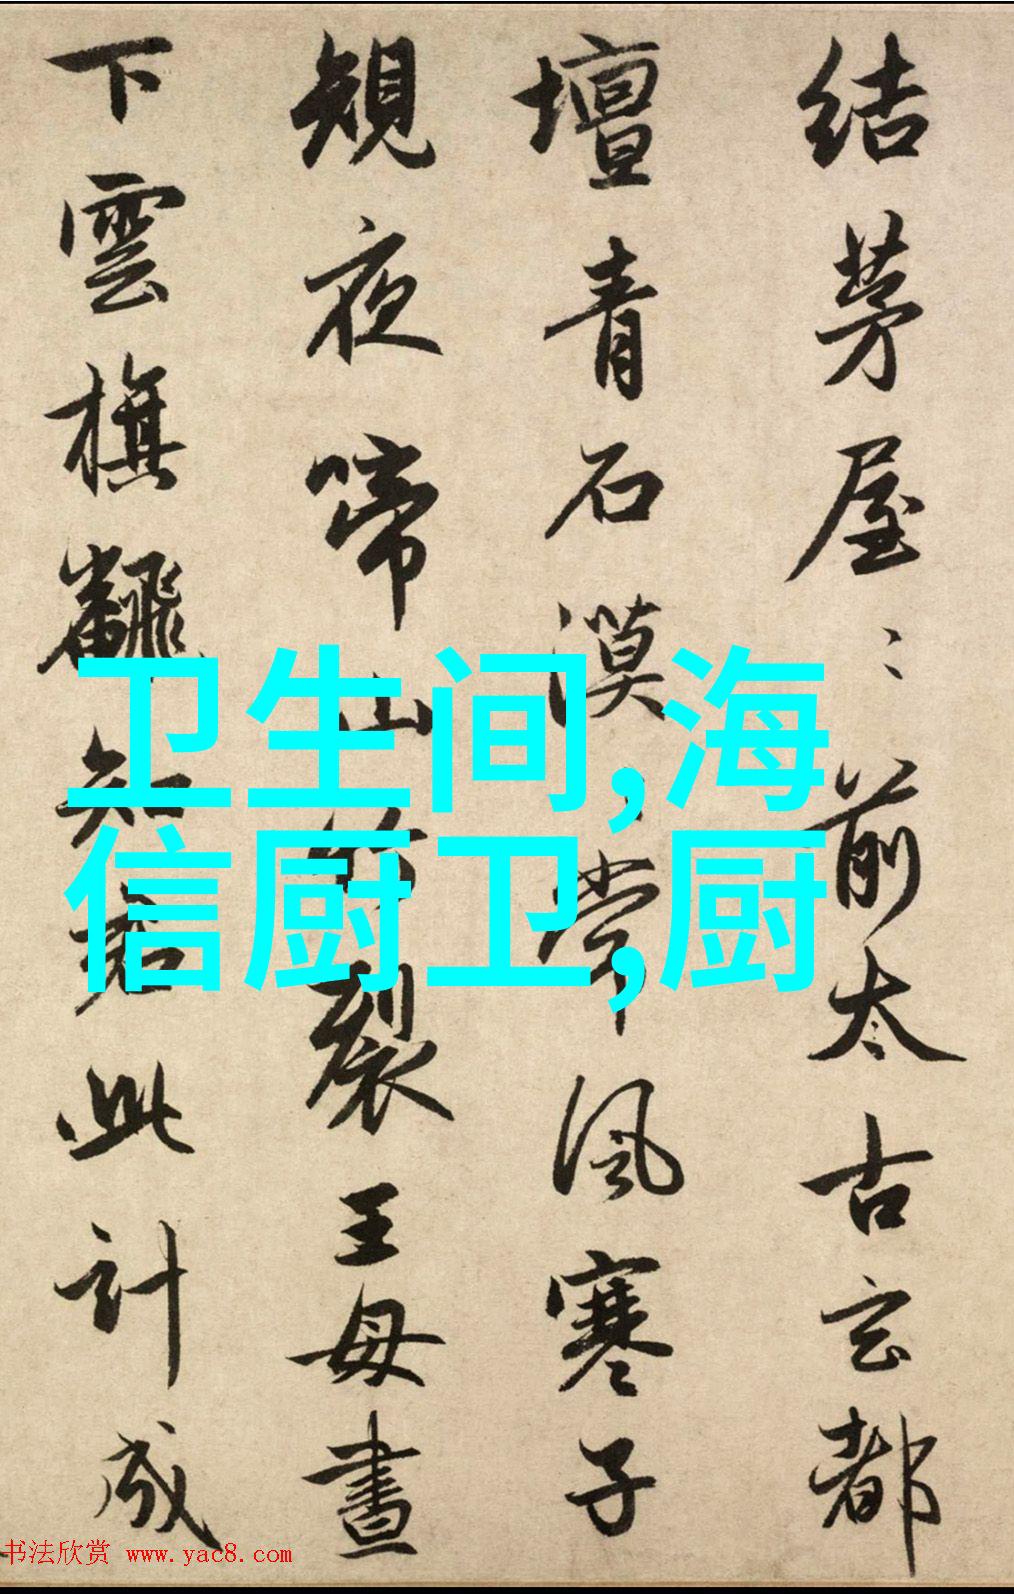 結茅屋〻前太古玄都
壇青石漠〻常風寒子
規夜啼山竹裂王母晝
下雲旗飜知君此計成
卫生间,海
信厨卫,厨
书法欣赏 www.yac8.com